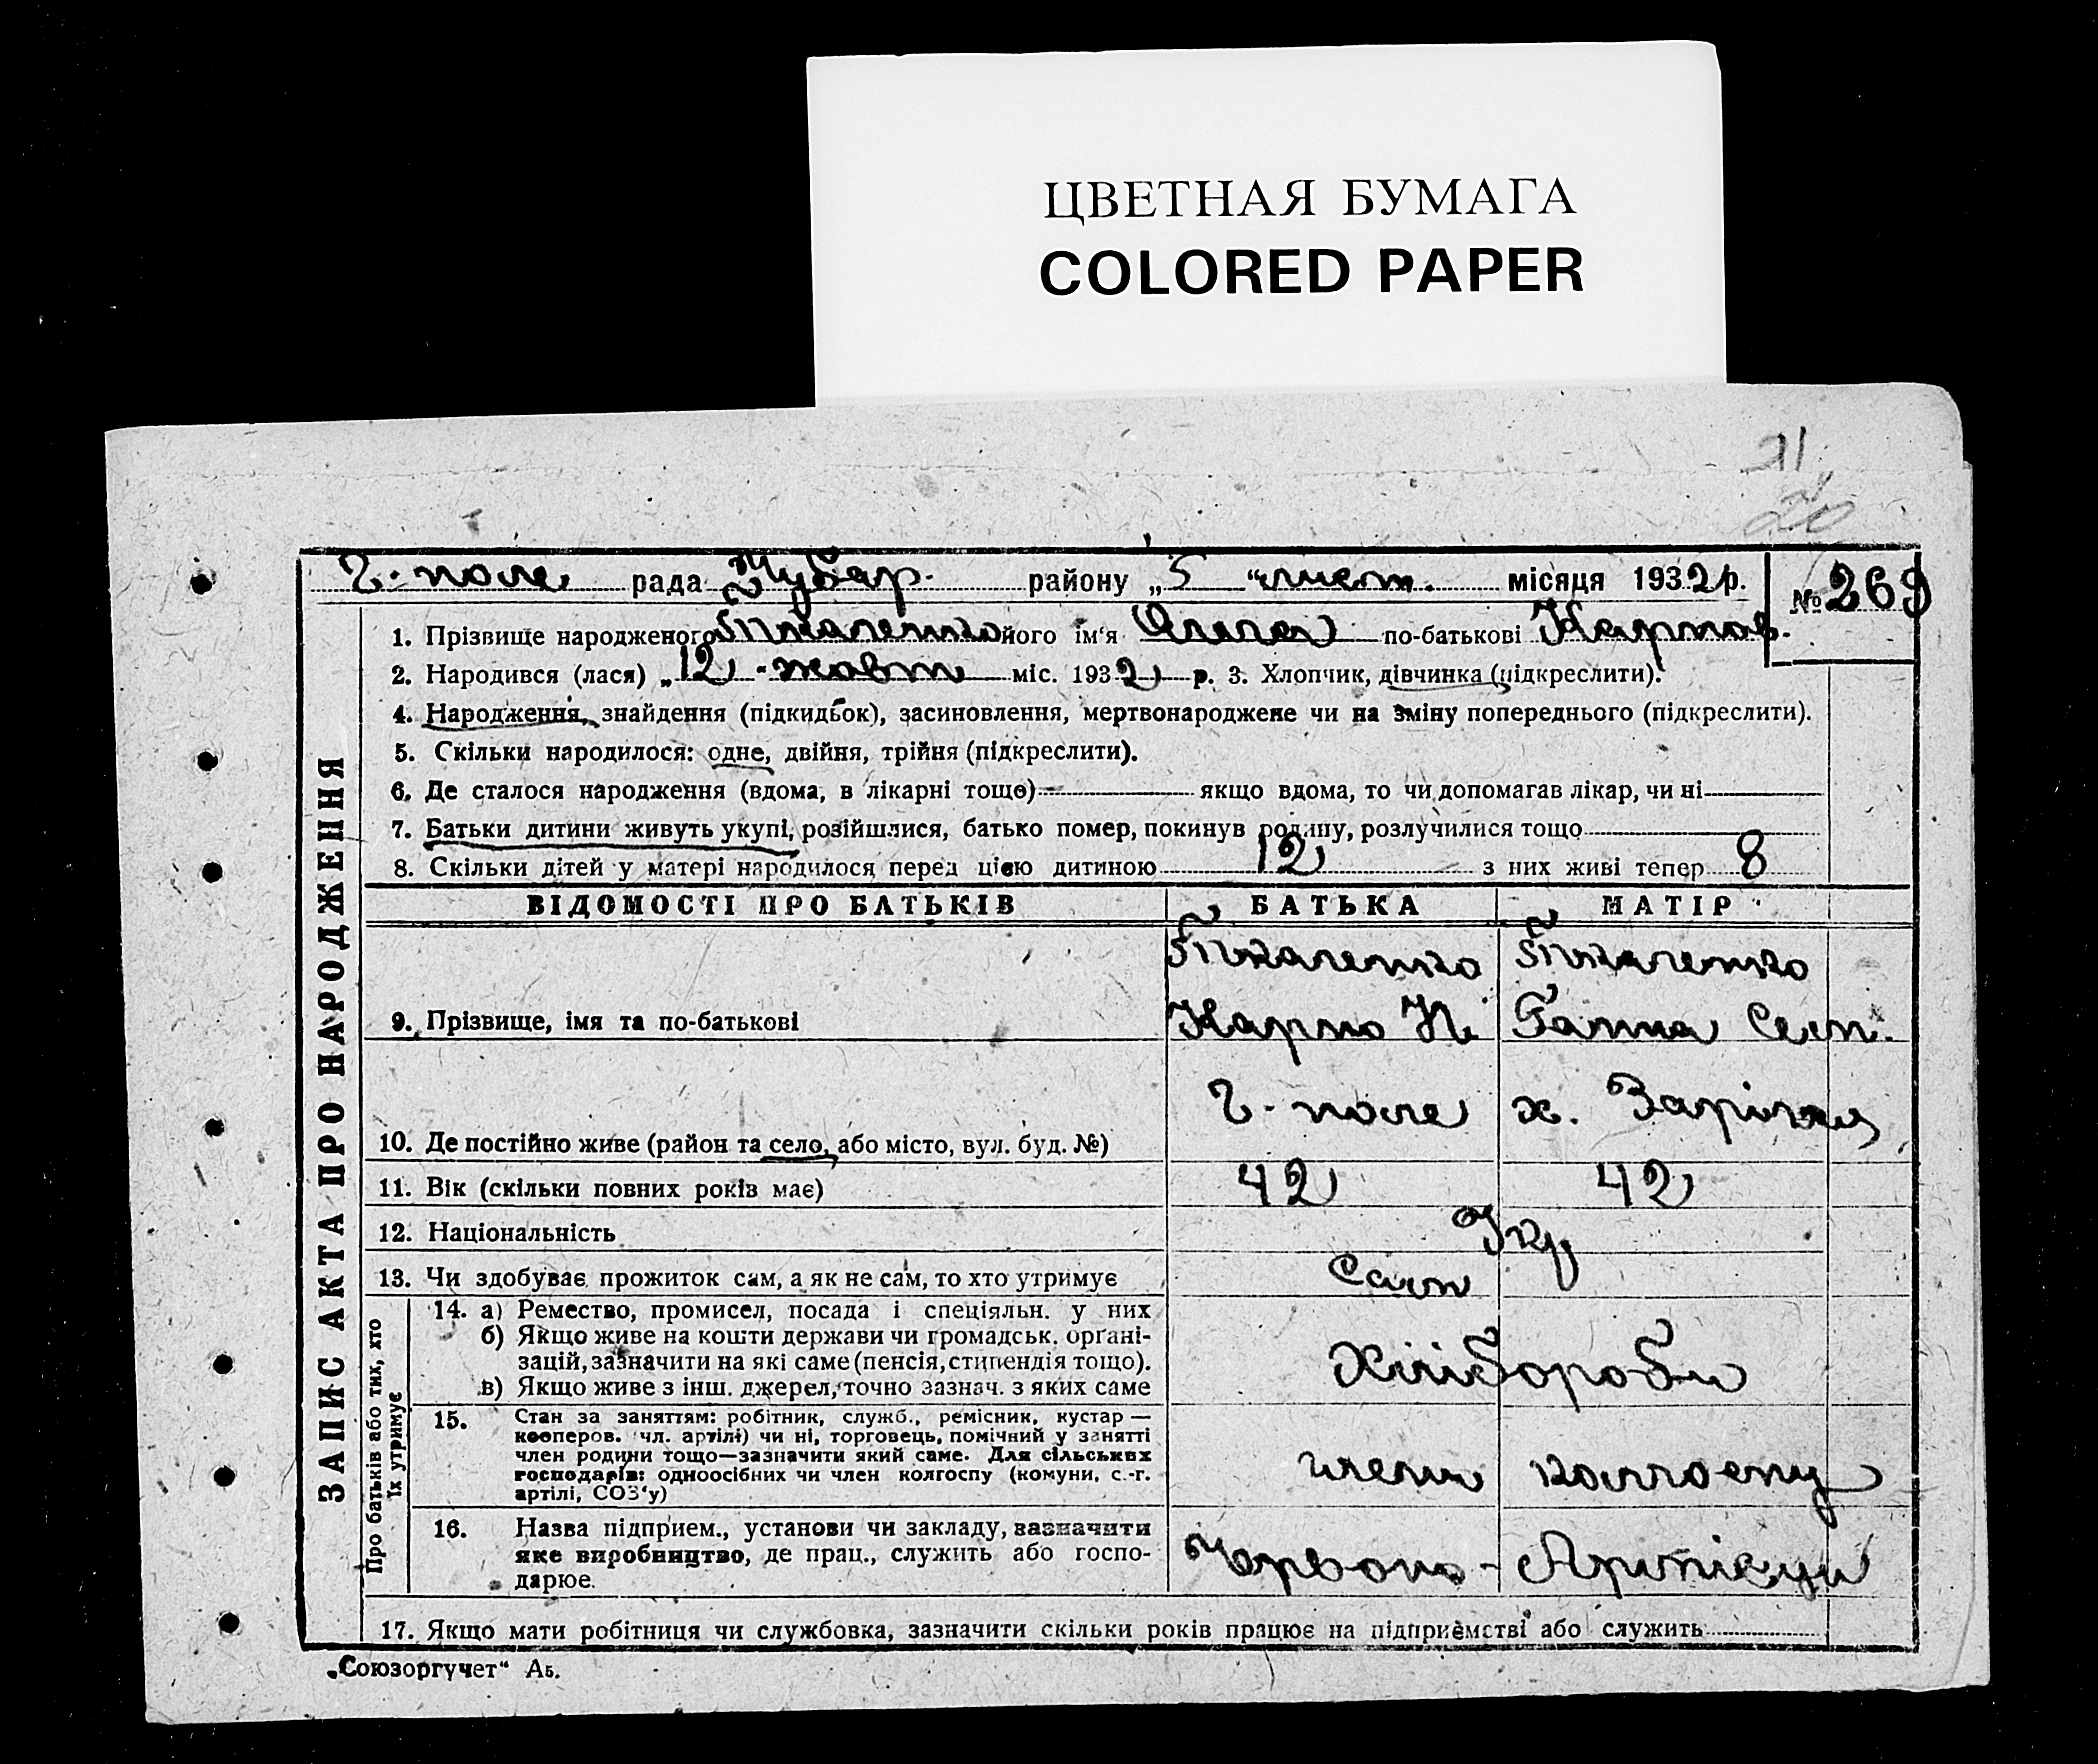 ЦВЕТНАЯ БУМАГА
COLORED PAPER
21
20
Г. поле рада Чубар. району „5 “ лист. місяця 1932 р. № 269
1. Прізвище народженого Шкаленко його ім‘я Олена по-батькові Карпов.
2. Народився (лася) „12 “ жовт міс. 1932 р. 3. Хлопчик, дівчинка (підкреслити).
4. Народження, знайдення (підкидьок), засиновлення, мертвонароджене чи на зміну попереднього (підкреслити).
5. Скільки народилося: одне, двійня, трійня (підкреслити).
6. Де сталося народження (вдома, в лікарні тощо) якщо вдома, то чи допомагав лікар, чи ні
7. Батьки дитини живуть укупі, розійшлися, батько помер, покинув родину, розлучилися тощо
8. Скільки дітей у матері народилося перед цією дитиною 12 з них живі тепер 8
ВІДОМОСТІ ПРО БАТЬКІВ БАТЬКА МАТІР
Шкаленко Шкаленко
9. Прізвище, імя та по-батькові Карпо Ганна
Г. поле х. Заріччя
10. Де постійно живе (район та село, або місто, вул. буд. №)
11. Вік (скільки повних років має) 42 42
12. Національність Укр
13. Чи здобуває прожиток сам, а як не сам, то хто утримує Сам
14. а) Ремество, промисел, посада і спеціяльн. у них
б) Якщо живе на кошти держави чи громадськ. органі-
зацій, зазначити на які саме (пенсія, стипендія тощо).
в) Якщо живе з інш. джерел, точно зазнач. з яких саме
Хлібороби
15. Стан за заняттям: робітник, служб., ремісник, кустар —
кооперов. чл. артілі) чи ні, торговець, помічний у занятті
член родини тощо—зазначити який саме. Для сільських
господарів: одноосібних чи член колгоспу (комуни, с.-г.
артілі, СОЗ‘у)
члени колгоспу
16. Назва підприєм., установи чи закладу, зазначити
яке виробництво, де прац., служить або госпо-
дарює.
Червоно-Армієць
17. Якщо мати робітниця чи службовка, зазначити скільки років працює на підприємстві або служить
ЗАПИС АКТА ПРО НАРОДЖЕННЯ
Про батьків або тих, хто
їх утримує
„Союзоргучет“ Аб.